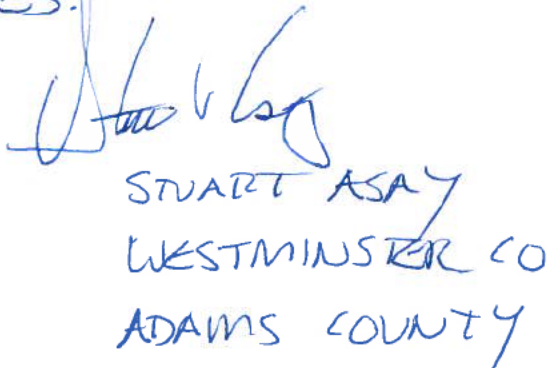 STUART ASAY
WESTMINSTER CO
ADAMS COUNTY